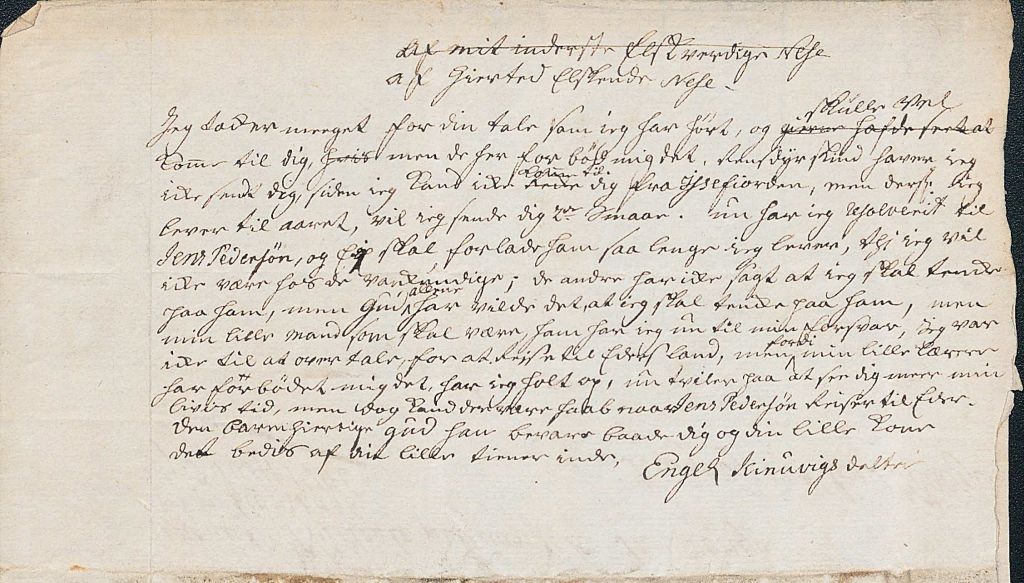 Af mit inderste Elskverdige Nese
af Hierted Elskende Nese.
skulle vel
Jeg tacker meeget for din tale som ieg har hört, og gierne hafde seet at
komme til dig, hvis men de her for bød mig det. Rensdyrskind haver ieg
ikke sendt dig, siden ieg kand ikke komme til dig fra Issefiorden, men dersom ieg
lever til aaret, vil ieg sende dig 2de Smaae. Nu har ieg til
Jens Pedersön, og Ej skal forlade ham saa lenge ieg lever, thj ieg vil
ikke være hos de vankundige; de andre har ikke sagt at ieg skal tencke
paa ham, men Gud allene har vildet det, at ieg skal tencke paa ham, men
min lille Mand som skal være, ham har ieg nu til min forsvar, Jeg var
ikke til at overtale, for at Reise til Eders land, men fordi min lille Lærere
har forbödet mig det, har ieg holt op, nu tviler paa at see dig meere min
livs tid, men dog kand der være haab naar Jens Pedersön Reiser til Eder.
Den barmhiertige Gud han bevare baade dig og din lille Kone
det bedes af dit lille tienerinde,
Engel Kinuvigs datter